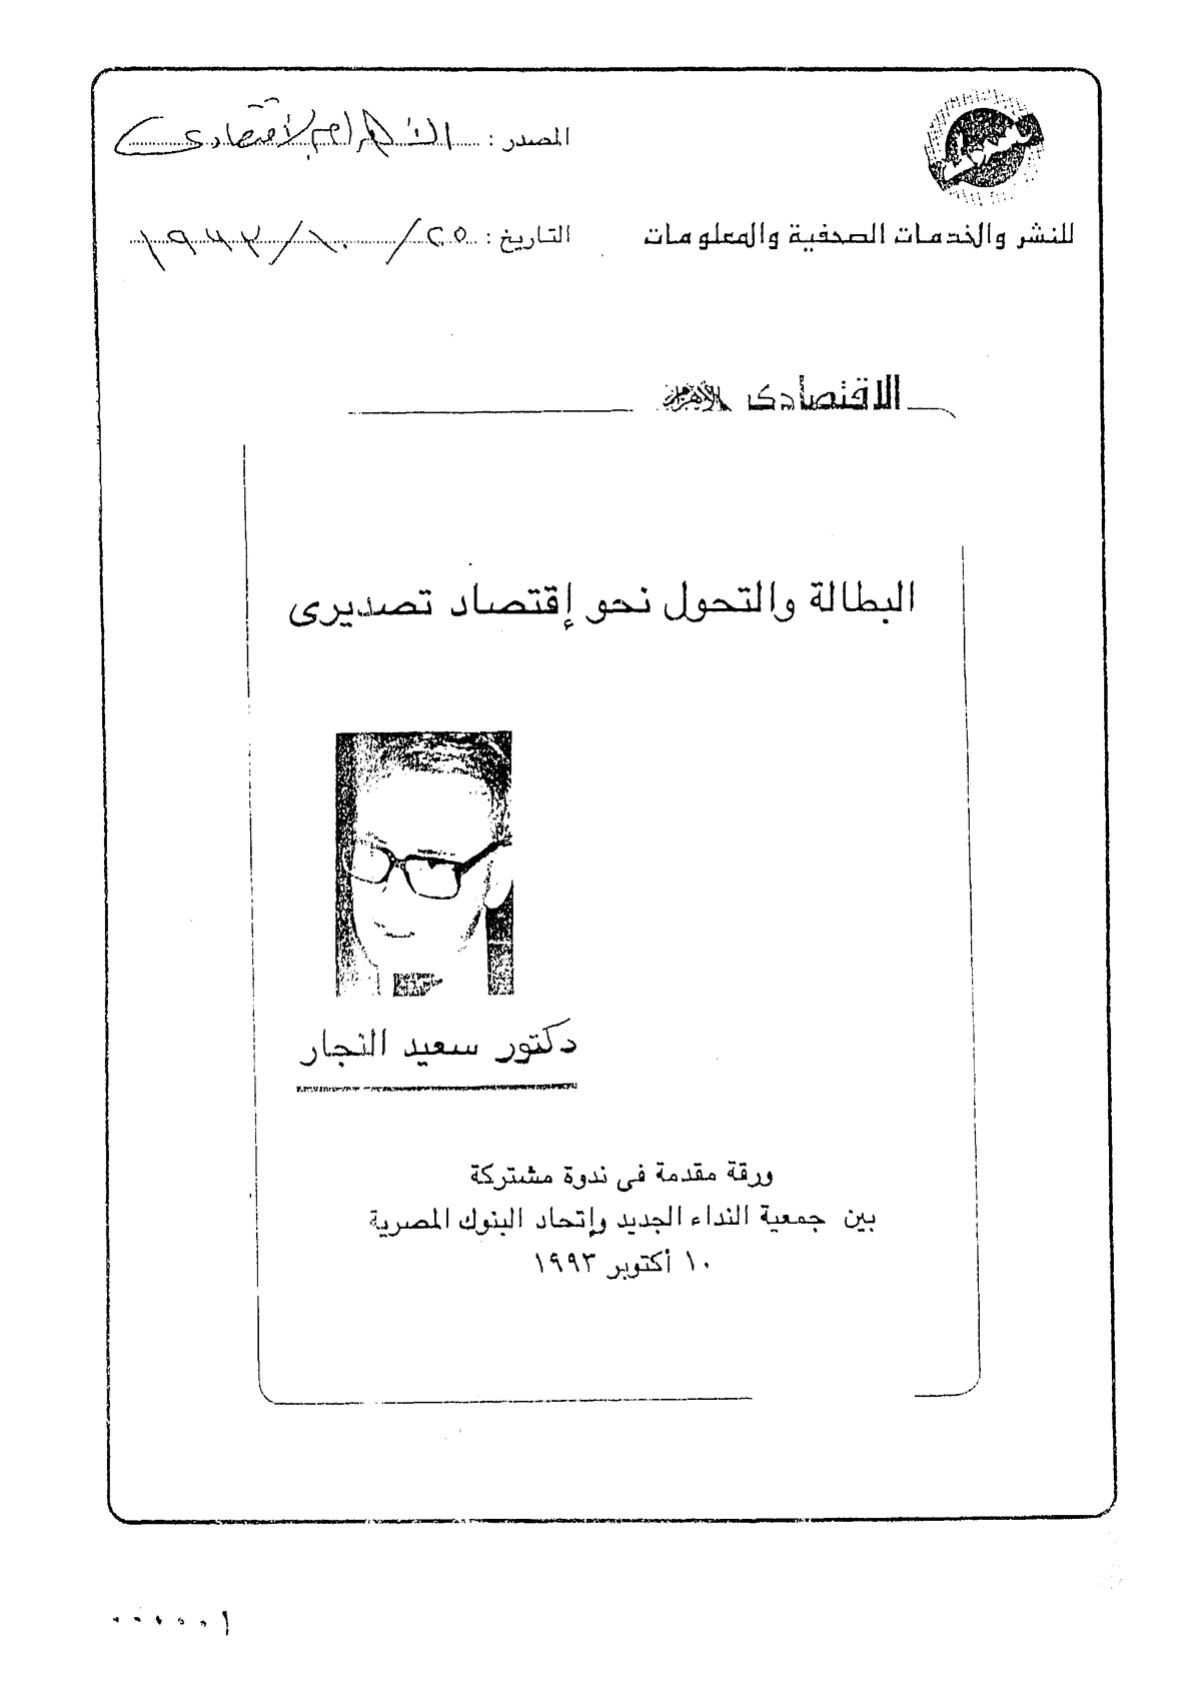 المصدر : الأهرام الاقتصادى
للنشر والخدمات الصحفية والمعلومات
التاريخ : ٢٥ / ١٠ / ١٩٩٣
الاقتصادى الأهرام
البطالة والتحول نحو إقتصاد تصديرى
دكتور سعيد النجار
ورقة مقدمة فى ندوة مشتركة
بين جمعية النداء الجديد وإتحاد البنوك المصرية
١٠ أكتوبر ١٩٩٣